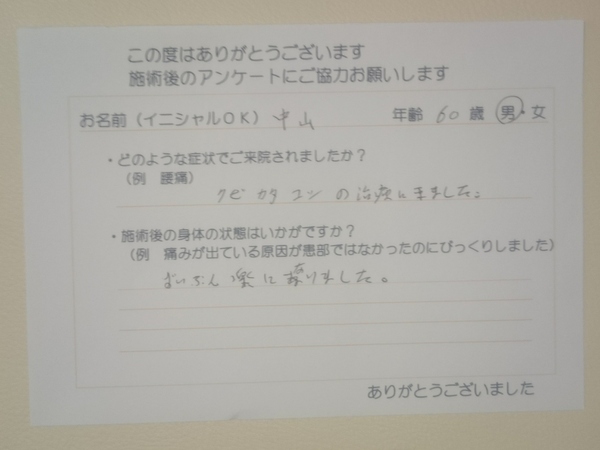 この度はありがとうございます
施術後のアンケートにご協力お願いします
お名前（イニシャルOK） 中山 年齢 60 歳 男・女
・どのような症状でご来院されましたか？
（例 腰痛）
クビ カタ コシ の治療にきました。
・施術後の身体の状態はいかがですか？
（例 痛みが出ている原因が患部ではなかったのにびっくりしました）
ずいぶん楽に成りました。
ありがとうございました